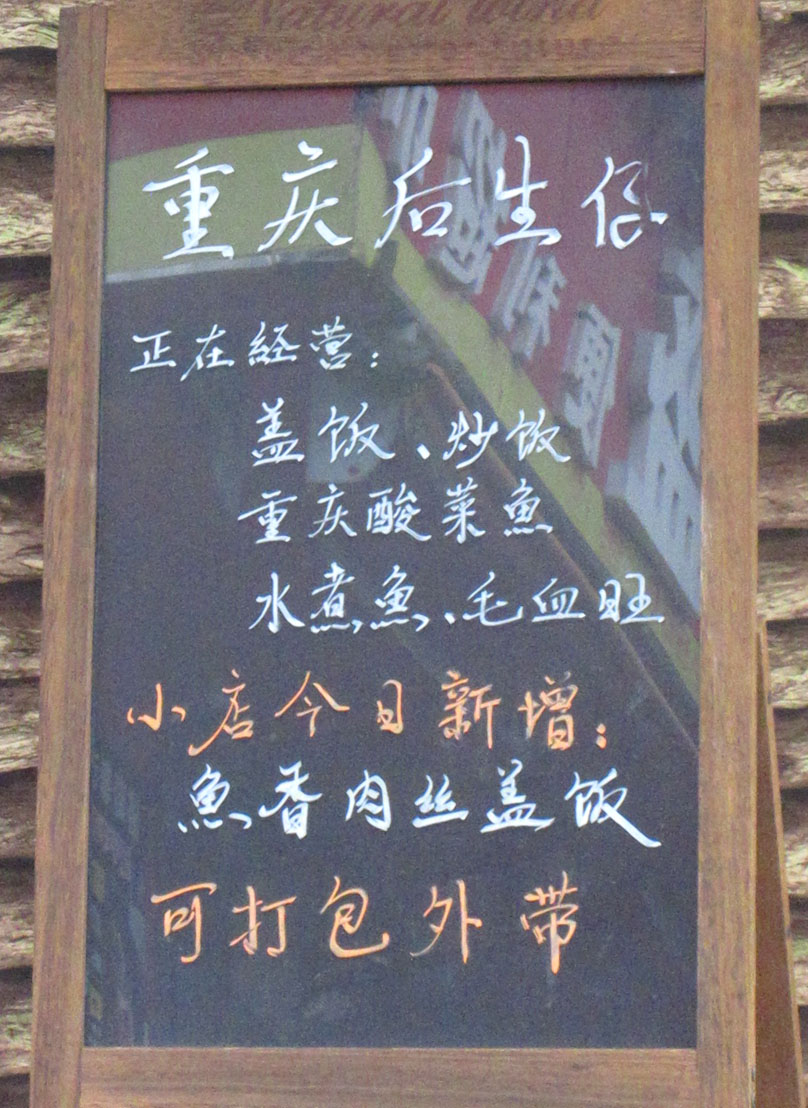 Natural Wind
重庆后生仔
正在經营：
盖饭、炒饭
重庆酸菜魚
水煮魚、毛血旺
小店今日新增：
魚香肉丝盖饭
可打包外带